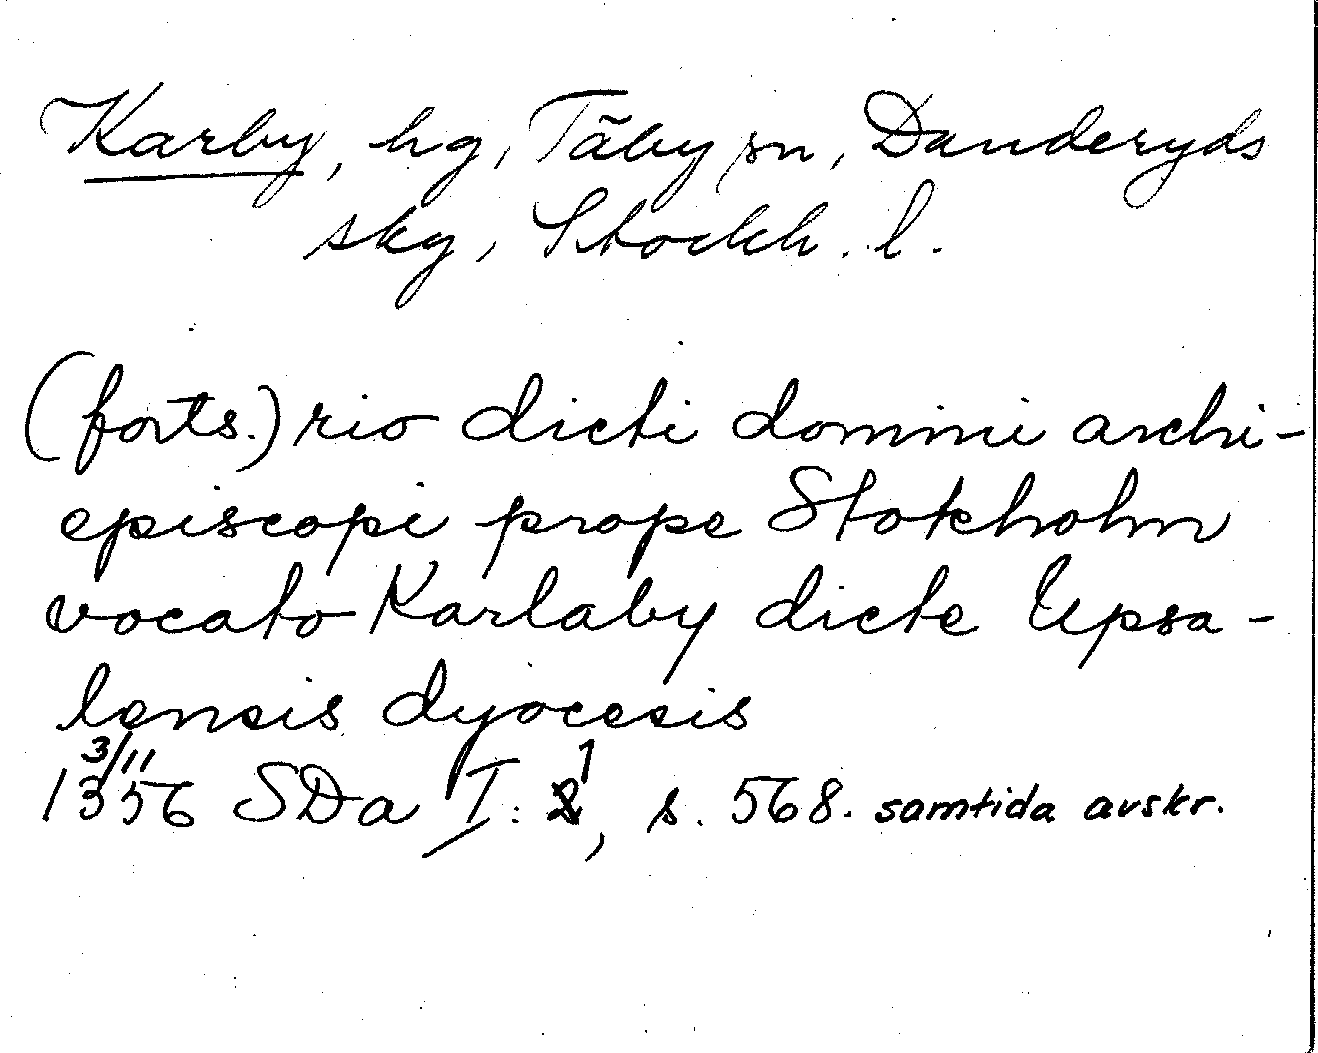 Karby, hg, Täby sn, Danderyds
skg, Stockh. l.
(forts.) rio dicti domini archi-
episcopi prope Stokholm
vocato Karlaby dicte Upsa-
lensis dyocesis
3/11 1
1356 SDa I: 2, s. 568. samtida avskr.